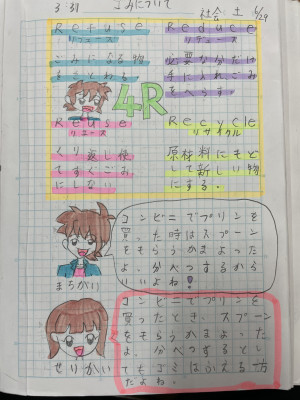 3-31 ごみについて 社会 土 6/29
Refuse
リフューズ
ごみになる物
をことわる
Reduce
リデュース
必要な分だけ
手に入れごみ
をへらす
4R
Reuse
リユース
くり返し使
Recycle
リサイクル
原材料にもど
して新しい物
にする.
コンビニでプリンを
買った時はスプーン
をもらうかまよった
よ.分べつするから
いいよね!
コンビニでプリンを
買ったとき、スプーン
をもらうかまよった
よ.分べつするとい
ってもゴミはふえる方
だよね.